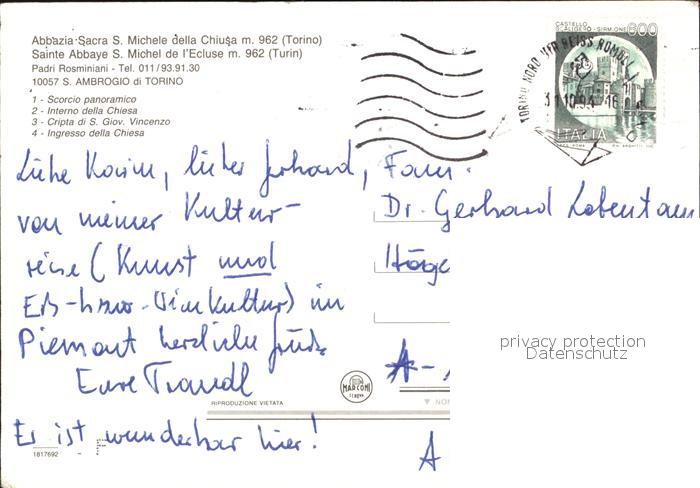 Abbazia Sacra S. Michele della Chiusa m. 962 (Torino)
Sainte Abbaye S. Michel de l'Ecluse m. 962 (Turin)
Padri Rosminiani - Tel. 011/93.91.30
10057 S. AMBROGIO di TORINO
1 - Scorcio panoramico
2 - Interno della Chiesa
3 - Cripta di S. Giov. Vincenzo
4 - Ingresso della Chiesa
CASTELLO
SCALIGERO - SIRMIONE 600
TORINO NORD
31.10.94-16
ITALIA
Liebe Karin, lieber Gerhard,
von meiner Kultur-
reise (Kunst und
Eß- bzw. Weinkultur) im
Piemont herzliche Grüße
Eure Traudl
Es ist wunderbar hier!
Fam.
Dr. Gerhard
A-
A
privacy protection
Datenschutz
MARCONI
RIPRODUZIONE VIETATA
1817692